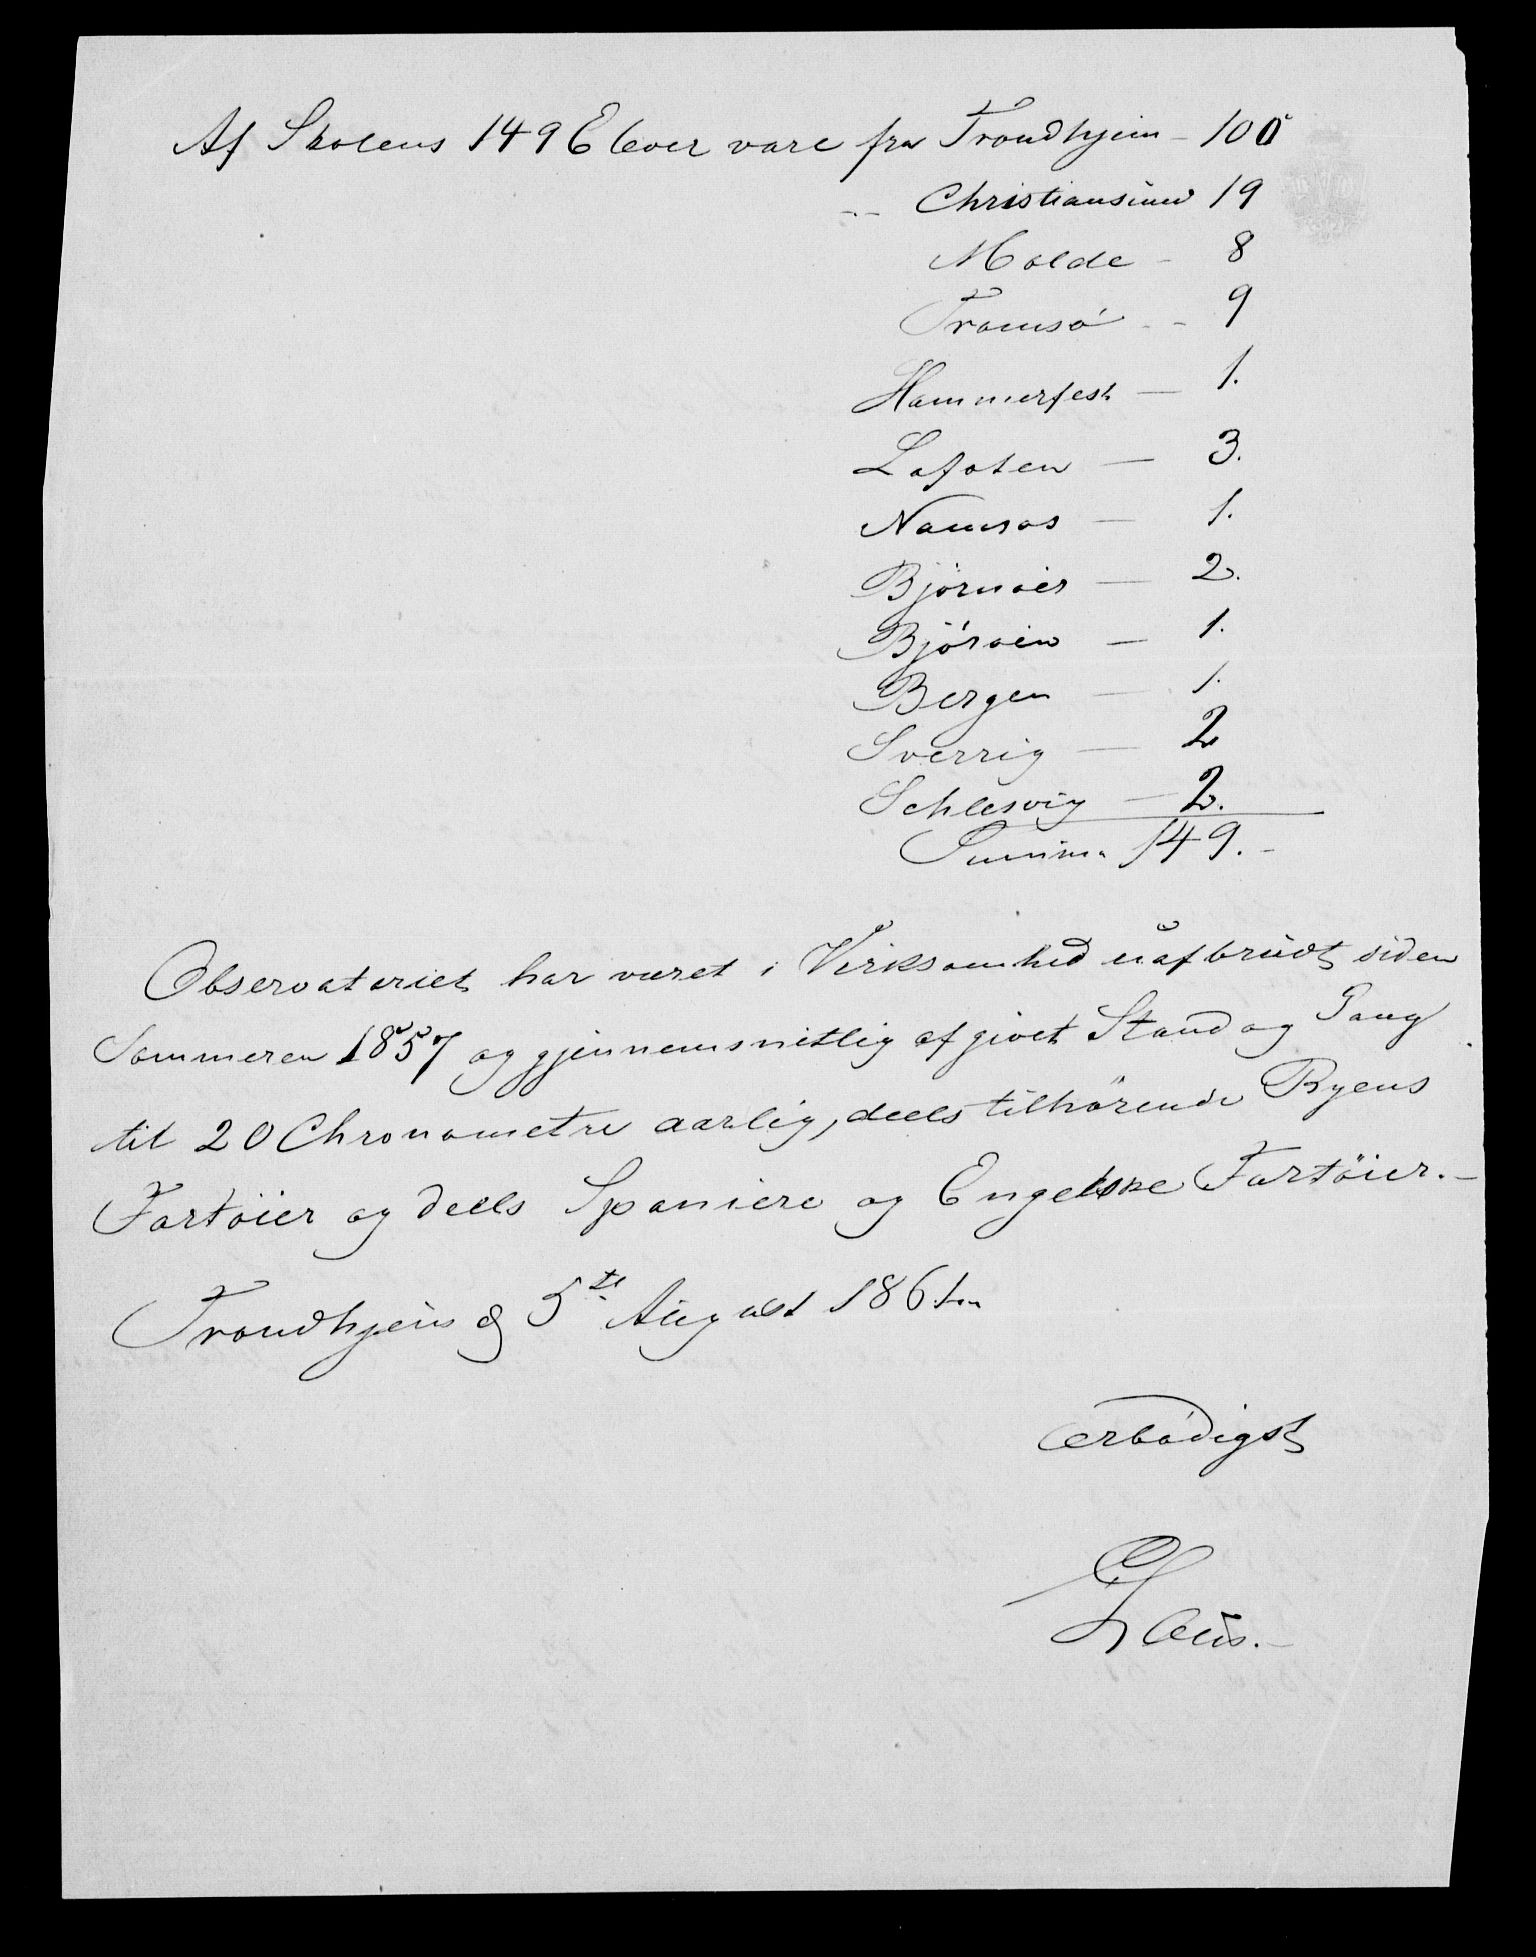 Af Skolens 149 Elever vare fra Trondhjem - 100
-- Christiansund 19
Molde - 8
Tromsö -- 9
Hammerfest — 1.
Lofoten — 3.
Namsos — 1.
Björnöer — 2.
Björöen — 1.
Bergen — 1.
Sverrig — 2
Schlesvig — 2.
Summa 149.-
Observatoriet har været i Virksomhed uafbrudt siden
Sommeren 1857 og gjennemsnitlig afgivet Stand og Gang
til 20 Chronometre aarlig, deels tilhörende Byens
Fartöier og deels Spaniere og Engelske Fartöier.-
Trondhjem d 5te August 1861
ærbödigst